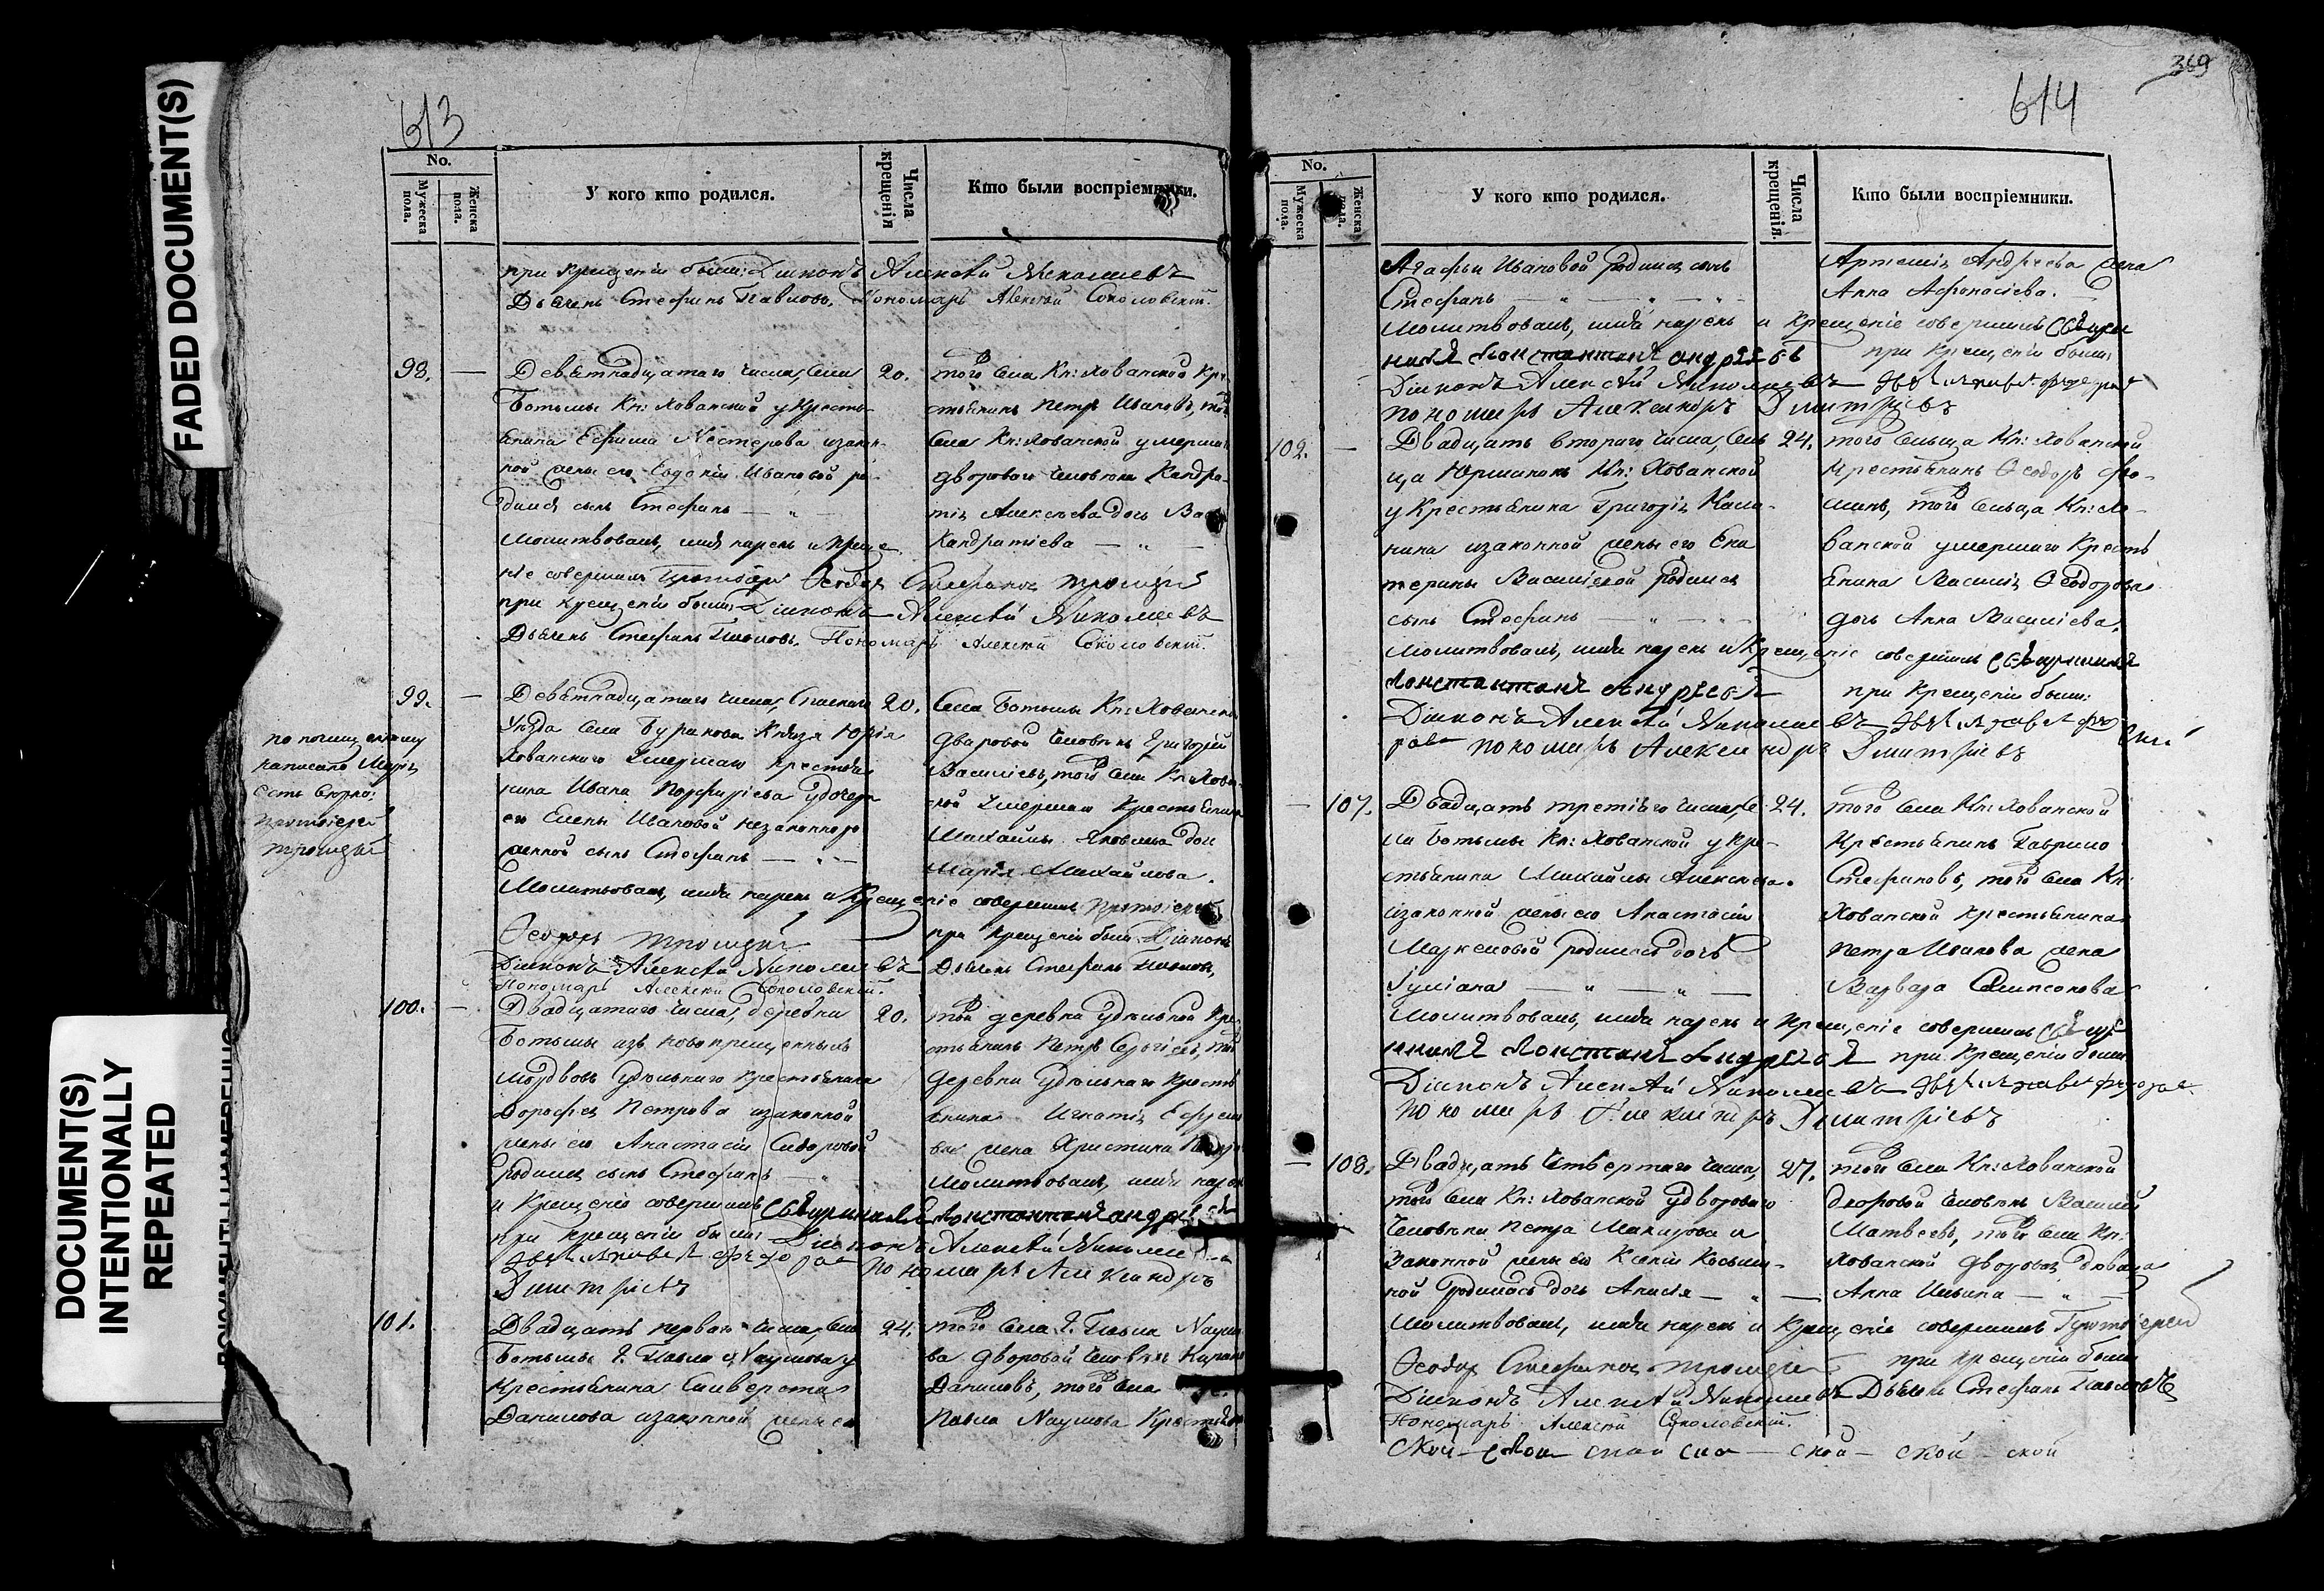 FADED DOCUMENT(S)
DOCUMENT(S)
INTENTIONALLY
REPEATED
613
No.
Мужеска пола.
Женска пола.
У кого кто родился.
Числа крещенія
Кто были воспріемники.
при крещеніи были: Діяконъ Алексѣй Николаевъ
Дьячекъ Стефанъ Павловъ, Пономарь Алексѣй Соколовскій.
98. —
Девятнадцатаго числа, села
Ботьмы Кн: Хованской у кресть-
янина Ефима Нестерова изакон-
ной жены его Евдокіи Ивановой ро-
дился сынъ Стефанъ —
20.
того села Кн: Хованской кре-
стьянинъ Петръ Ивановъ, того
села Кн: Хованской умершаго
двороваго человѣка Кандра-
тія Алексѣева дочь
Кандратіева —
Молитвовалъ, имя нарекъ и креще
ніе совершилъ Протоіерей Ѳеодоръ Стефановъ Троицкій
при крещеніи были: Діяконъ Алексѣй Николаевъ
Дьячекъ Стефанъ Павловъ. Пономарь Алексѣй Соколовскій.
99. —
Девятнадцатаго числа, Спаскаго
Уѣзда села Буракова Князя Юрія
Хованскаго умершаго крестья
нина Ивана Порфирьева удочери
его Елены Ивановой незаконнорож
денной сынъ Стефанъ —
20.
села Ботьмы Кн: Хованской
дворовой человѣкъ Григорій
Васильевъ, того села Кн: Хован-
ской умершаго крестьянина
Михайлы Яковлева дочь
Марія Михайлова.
по почищенному
написано Марія
есть вѣрно:
протоіерей
Троицкій
Молитвовалъ, имя нарекъ и крещеніе совершилъ протоіерей
Ѳеодоръ Троицкій
при крещеніи были: Діяконъ
Діяконъ Алексѣй Николаевъ
Дьячекъ Стефанъ Павловъ,
Пономарь Алексѣй Соколовскій.
100. —
Двадцатаго числа, деревни
Ботьмы изъ новокрещенныхъ
мордовъ удѣльнаго крестьянина
Дорофея Петрова изаконной
жены его Анастасіи Сидоровой
родился сынъ Стефанъ —
20.
той деревни удѣльной кре-
стьянинъ Петръ Сергіевъ, той
деревни удѣльнаго кресть
янина Игнатія Ефремо
ва жена Христина
Молитвовалъ, имя нарекъ
и Крещеніе совершилъ Священникъ Константинъ Андреевъ
при Крещеніи были: Діяконъ Алексѣй Николаевъ
пономарь Александръ
Дмитріевъ
101.
Двадцать перваго числа, села
Ботьмы Г. Павла Наумова у
крестьянина Сильверста
Данилова изаконной жены его
24.
того села Г. Павла Наумо
ва дворовой человѣкъ
Даниловъ, того села
Павла Наумова Крестьян
614
369
No.
Мужеска пола.
Женска пола.
У кого кто родился.
Числа крещенія.
Кто были воспріемники.
Агафьи Ивановой родился сынъ
Стефанъ —
Артемія Андреева жена
Анна Афонасіева.
Молитвовалъ, имя нарекъ и крещеніе совершилъ Священ
никъ Константинъ Андреевъ при крещеніи были:
Діяконъ Алексѣй Николаевъ
пономарь Александръ Дмитріевъ
102. —
Двадцать втораго числа, сель
ца Юрманокъ Кн: Хованской
у Крестьянина Григорія Кали-
нина изаконной жены его Ека
терины Васильевой родился
сынъ Стефанъ —
24.
того сельца Кн: Хованской
крестьянинъ Ѳеодоръ Фо-
минъ, того сельца Кн: Хо-
ванской умершаго кресть
янина Василія Ѳеодорова
дочь Анна Васильева.
Молитвовалъ, имя нарекъ и Крещеніе совершилъ Священникъ
Константинъ Андреевъ при Крещеніи были:
Діяконъ Алексѣй Николаевъ
пономарь Александръ Дмитріевъ
— 107.
Двадцать третьяго числа, се
ла Ботьмы Кн: Хованской у кре-
стьянина Михайлы Алексѣева
изаконной жены его Анастасіи
Маркеловой родилась дочь
Іуліана —
24.
того села Кн: Хованской
Крестьянинъ Гаврило
Стефановъ, того села Кн:
Хованской крестьянина
Петра Иванова жена
Варвара Сампсонова
Молитвовалъ, имя нарекъ и крещеніе совершилъ Свяще
нникъ Константинъ Андреевъ при Крещеніи были
Діяконъ Алексѣй Николаевъ
пономарь Александръ Дмитріевъ
— 108.
Двадцать четвертаго числа,
того села Кн: Хованской у двороваго
человѣка Петра Макарова и
законной жены его Ксеніи Козьми-
ной родилась дочь Анисія —
27.
того села Кн: Хованской
дворовой человѣкъ Василій
Матвеевъ, того села Кн:
Хованской дворовая дѣвица
Анна Ильина —
Молитвовалъ, имя нарекъ и Крещеніе совершилъ Протоіерей
Ѳеодоръ Стефановъ Троицкій при крещеніи были
Діяконъ Алексѣй Николаевъ Дьячекъ Стефанъ Павловъ
Пономарь Алексѣй Соколовскій.
ской — ской — ской — ской